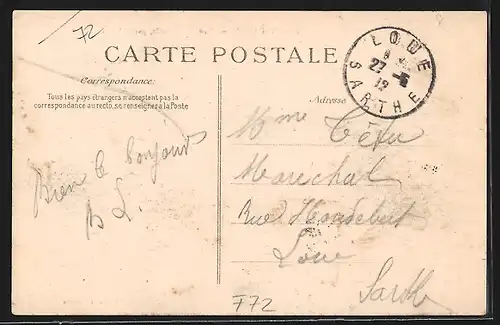 72
CARTE POSTALE
Correspondance
Tous les pays étrangers n'acceptent pas la
correspondance au recto, se renseigner à la Poste
Bien le bonjour
B L.
Adresse
LOUÉ
27 -5
12
SARTHE
Mme Têtu
Maréchal
Rue
Loué
Sarth
F72